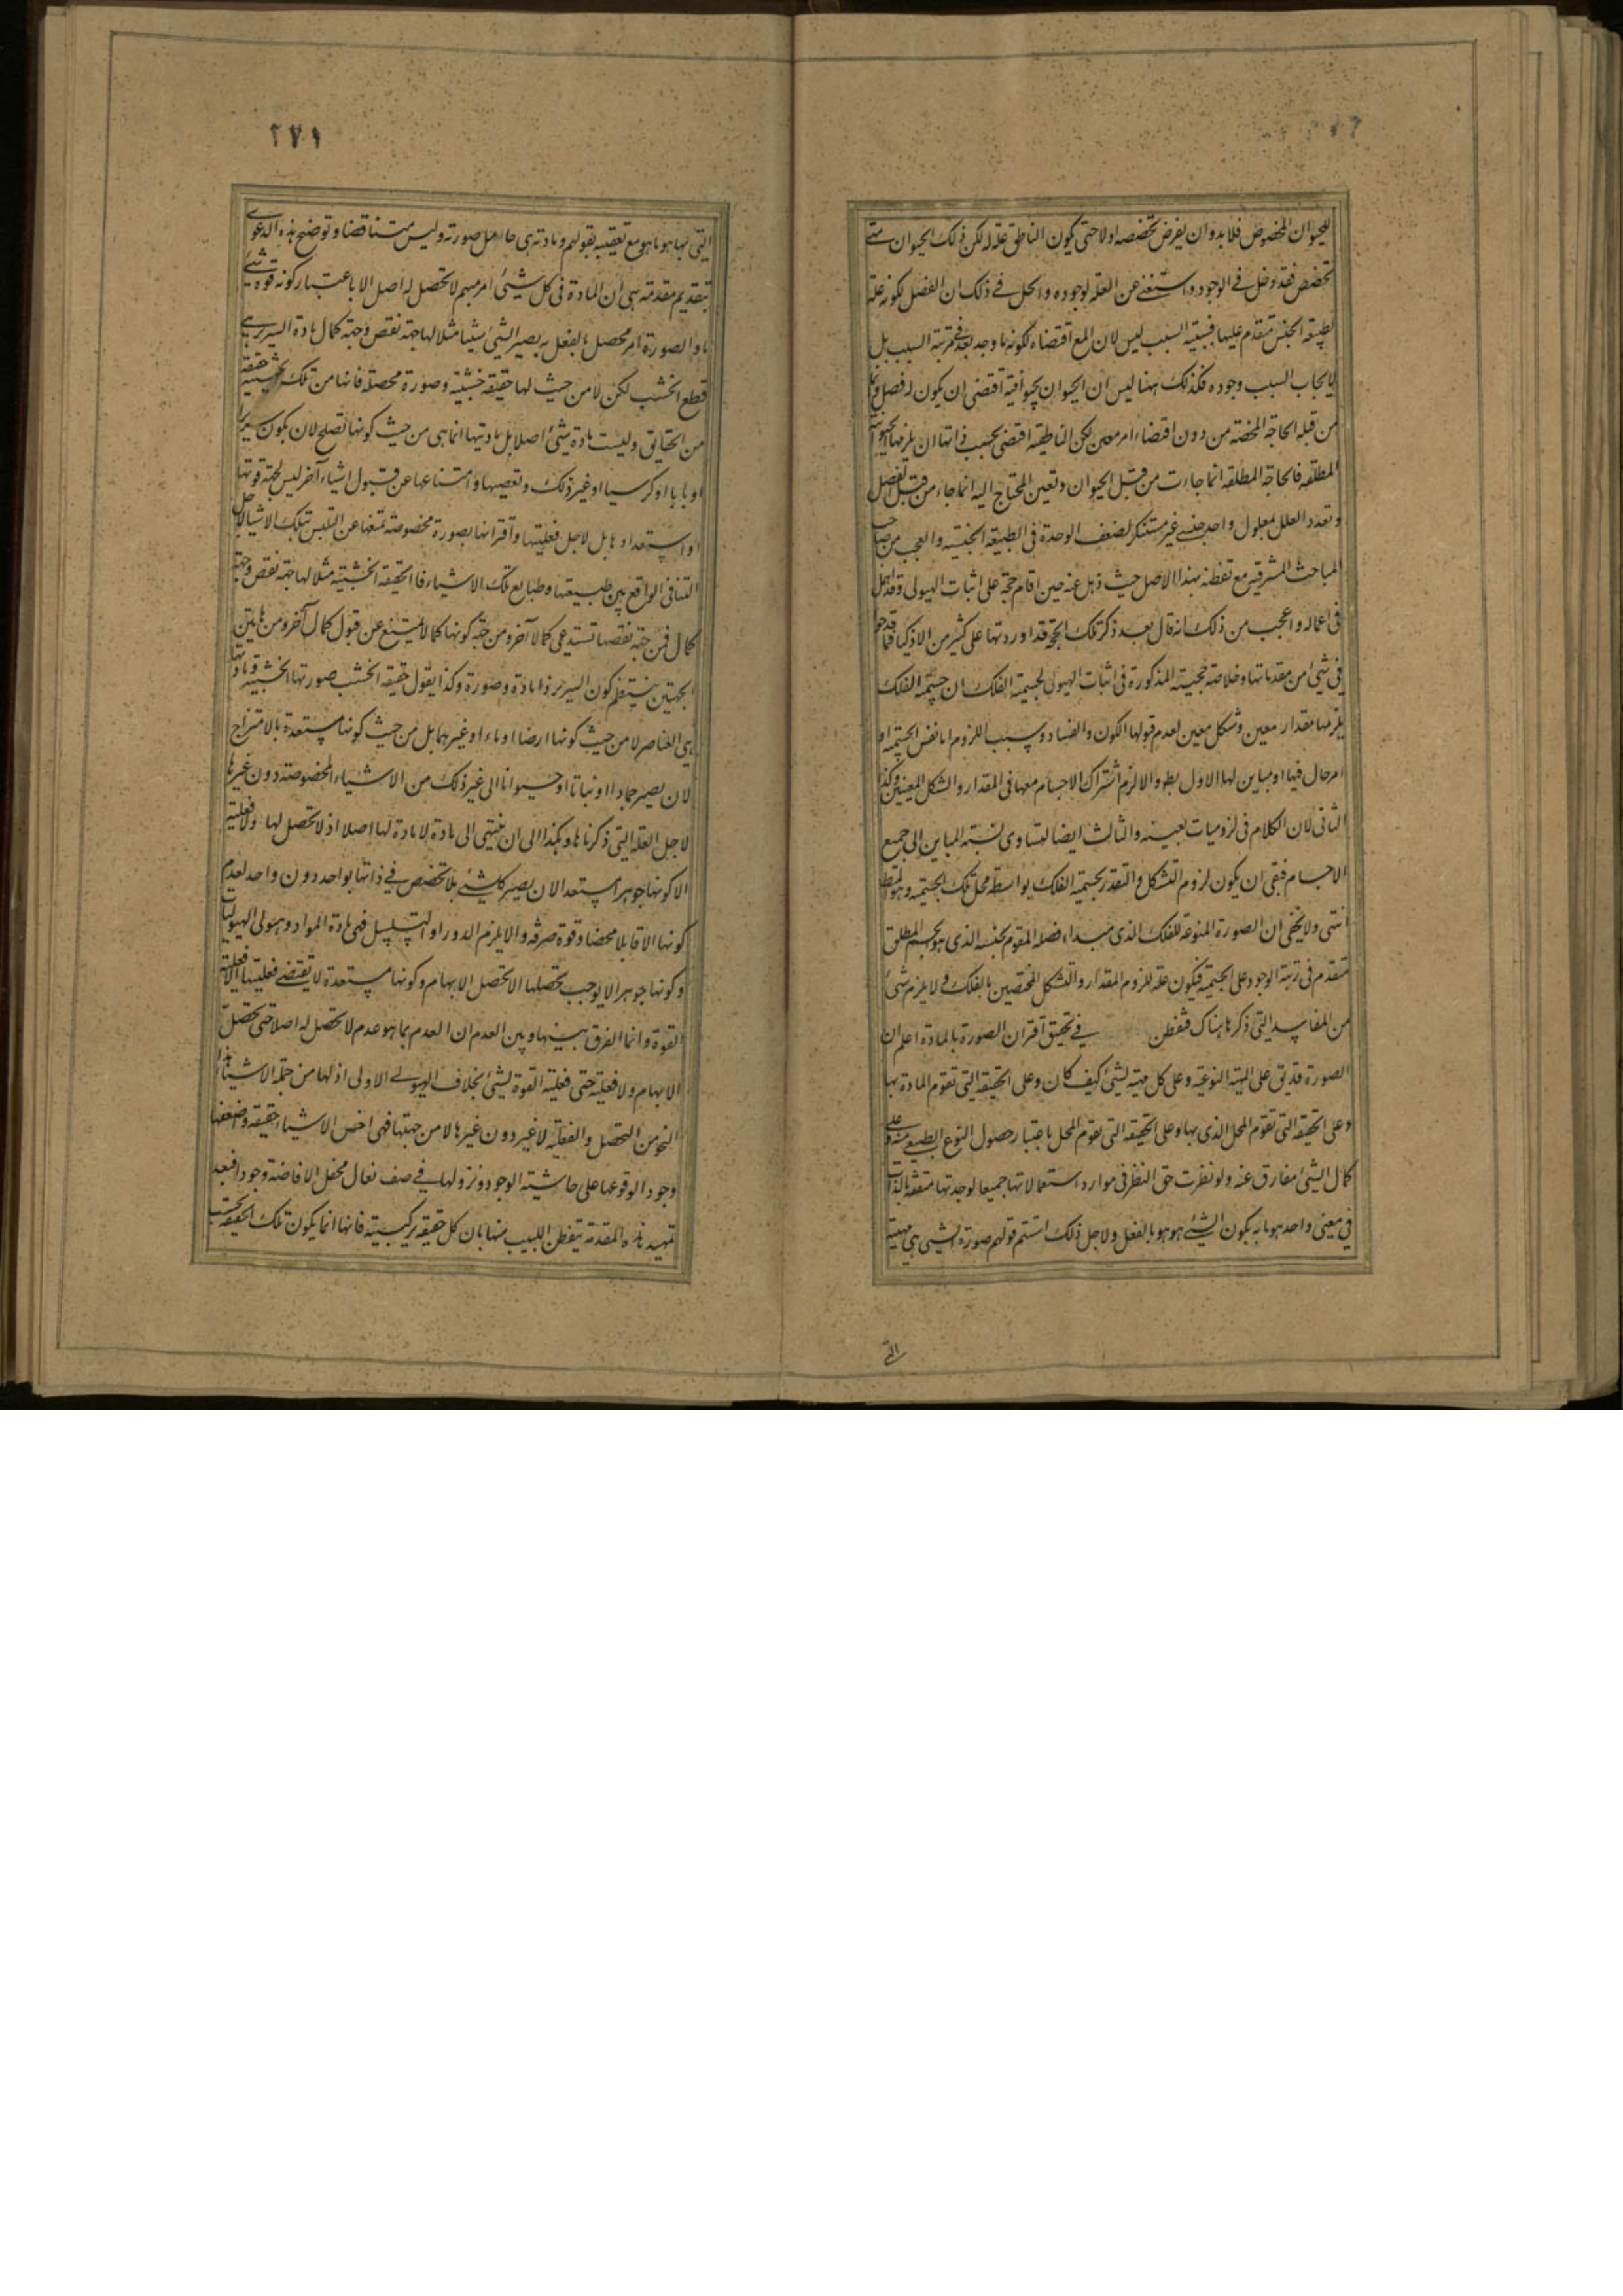 للحيوان المخصوص فلا بد وان يفرض تخصصه اولا حتى يكون الناطق علة له لكن ذلك الحيوان متى
تخصص فقد دخل في الوجود واستغنى عن العلة لوجوده والحل في ذلك ان الفصل لكونه علة
لطبيعة الجنس متقدم عليها فسببية السبب ليس لان المع اقتضاه لكونه ما وجد بعد في مرتبة السبب بل
لايجاب السبب وجوده فكذلك ههنا ليس ان الحيوان بحيوانيته اقتضى ان يكون له فصل وانما
من قبله الحاجة المحضة من دون اقتضاء امر معين لكن الناطقية اقتضى بحسب ذاتها ان يلزمها الحيوانية
المطلقة فالحاجة المطلقة انما جاءت من قبل الحيوان وتعين المحتاج اليه انما جاء من قبل الفصل
وتعدد العلل لمعلول واحد جنسي غير مستنكر لضعف الوحدة في الطبيعة الجنسية والعجب من صاحب
المباحث المشرقية مع تفطنه بهذا الاصل حيث ذهل عنه حين اقام حجة على اثبات الهيولى وقد اهمل
في اعماله واعجب من ذلك انه قال بعد ذكر تلك الحجة قد اوردتها على كثير من الاذكياء فما قدحوا
في شيء من مقدماتها وخلاصة حجيته المذكورة في اثبات الهيولى لجسمية الفلك ان جسمية الفلك
يلزمها مقدار معين وشكل معين لعدم قبولها الكون والفساد وسبب اللزوم اما نفس الجسمية او
امر حال فيها او مباين لها الاول بطو والا لزم اشتراك الاجسام معها في المقدار والشكل المعينين وكذا
الثاني لان الكلام في لزومياته بعينه والثالث ايضا لتساوي نسبة المباين الى جميع
الاجسام فبقي ان يكون لزوم التشكل والتقدر بجسمية الفلك بواسطة محل تلك الجسمية وهو المط
انتهى ولا يخفى ان الصورة المنوعة للفلك الذي مبداء فصله المقوم لجنسه الذي هو الجسم المطلق
متقدم في رتبة الوجود على الجسمية فيكون علة للزوم المقدار والتشكل المختصين بالفلك ولا يلزم شئ
من المفاسد التي ذكرها هناك فتفطن في تحقيق اقتران الصورة بالمادة اعلم ان
الصورة قد يق على المهية النوعية وعلى كل مهية لشئ كيف كان وعلى الحقيقة التي تقوم المادة بها
وعلى الحقيقة التي تقوم المحل الذي بها وعلى الحقيقة التي تقوم المحل باعتبار حصول النوع الطبيعي منه وعلى
كمال الشئ مفارق عنه ولو نظرت حق النظر في موارد استعمالاتها جميعا لوجدتها متفقة بالذات
في معنى واحد هو ما به يكون الشئ هو هو بالفعل ولاجل ذلك استتم قولهم صورة الشئ هي مهية
التي
٢٧١
التي بها هو ما هو مع تعقيبه بقولهم ومادته هي حامل صورته وليس متناقضا وتوضيح هذه الدعوى
بتقديم مقدمة هي ان المادة في كل شئ امر مبهم لا تحصل له اصل الا باعتبار كونه قوة شئ
ما والصورة امر محصل بالفعل به يصير الشئ شيئا مثلا لها جهة نقص وجهة كمال مادة السرير هي
قطع الخشب لكن لا من حيث لها حقيقة خشبية وصورة محصلة فانها من تلك الحيثية حقيقة
من الحقايق وليست مادة شئ اصلا بل ماديتها انما هي من حيث كونها تصلح لان يكون سريرا
او بابا او كرسيا او غير ذلك وتعصيها وامتناعها عن قبول اشياء آخر ليس لجهة قوتها
او استعدادها بل لاجل فعليتها واقترانها بصورة مخصوصة تمنعها عن التلبس بتلك الاشياء لاجل
التنافي الواقع بين طبيعتها وطبايع تلك الاشياء فالحقيقة الخشبية مثلا لها جهة نقص وجهة
كمال فمن جهة نقصها تستدعي كمالا آخر ومن جهة كونها كمالا يمتنع عن قبول كمال آخر ومن هاتين
الجهتين ينتظم كون السرير ذا مادة وصورة وكذا يقول حقيقة الخشب صورتها الخشبية ومادتها
هي العناصر لا من حيث كونها ارضا او ماء او غيرهما بل من حيث كونها مستعدة بالامتزاج
لان يصير جمادا او نباتا او حيوانا الى غير ذلك من الاشياء المخصوصة دون غيرها
لاجل العلة التي ذكرناها وهكذا الى ان ينتهي الى مادة لا مادة لها اصلا اذ لا تحصل لها ولا فعلية
الا كونها جوهرا مستعدا لان يصير كل شئ بلا تخصص في ذاتها بواحد دون واحد لعدم
كونها الا قابلا محضا وقوة صرفة والا يلزم الدور او التسلسل فهي مادة المواد وهيولى الهيوليات
وكونها جوهرا لا يوجب تحصلها الا تحصل الابهام وكونها مستعدة لا تقتضي فعليتها الا فعلية
القوة وانما الفرق بينها وبين العدم ان العدم بما هو عدم لا تحصل له اصلا حتى تحصل
الابهام ولا فعلية حتى فعلية القوة لشئ بخلاف الهيولى الاولى اذ لها من جملة الاشياء هذا
النحو من التحصل والفعلية لا غير دون غيرها لا من جهتها فهي اخس الاشياء حقيقة واضعفها
وجودا لوقوعها على حاشية الوجود ونزولها في صف نعال محفل الافاضة وجودا فبعد
تمهيد هذه المقدمة يتفطن اللبيب منها بان كل حقيقة تركيبية فانها انما يكون تلك الحقيقة بحسب